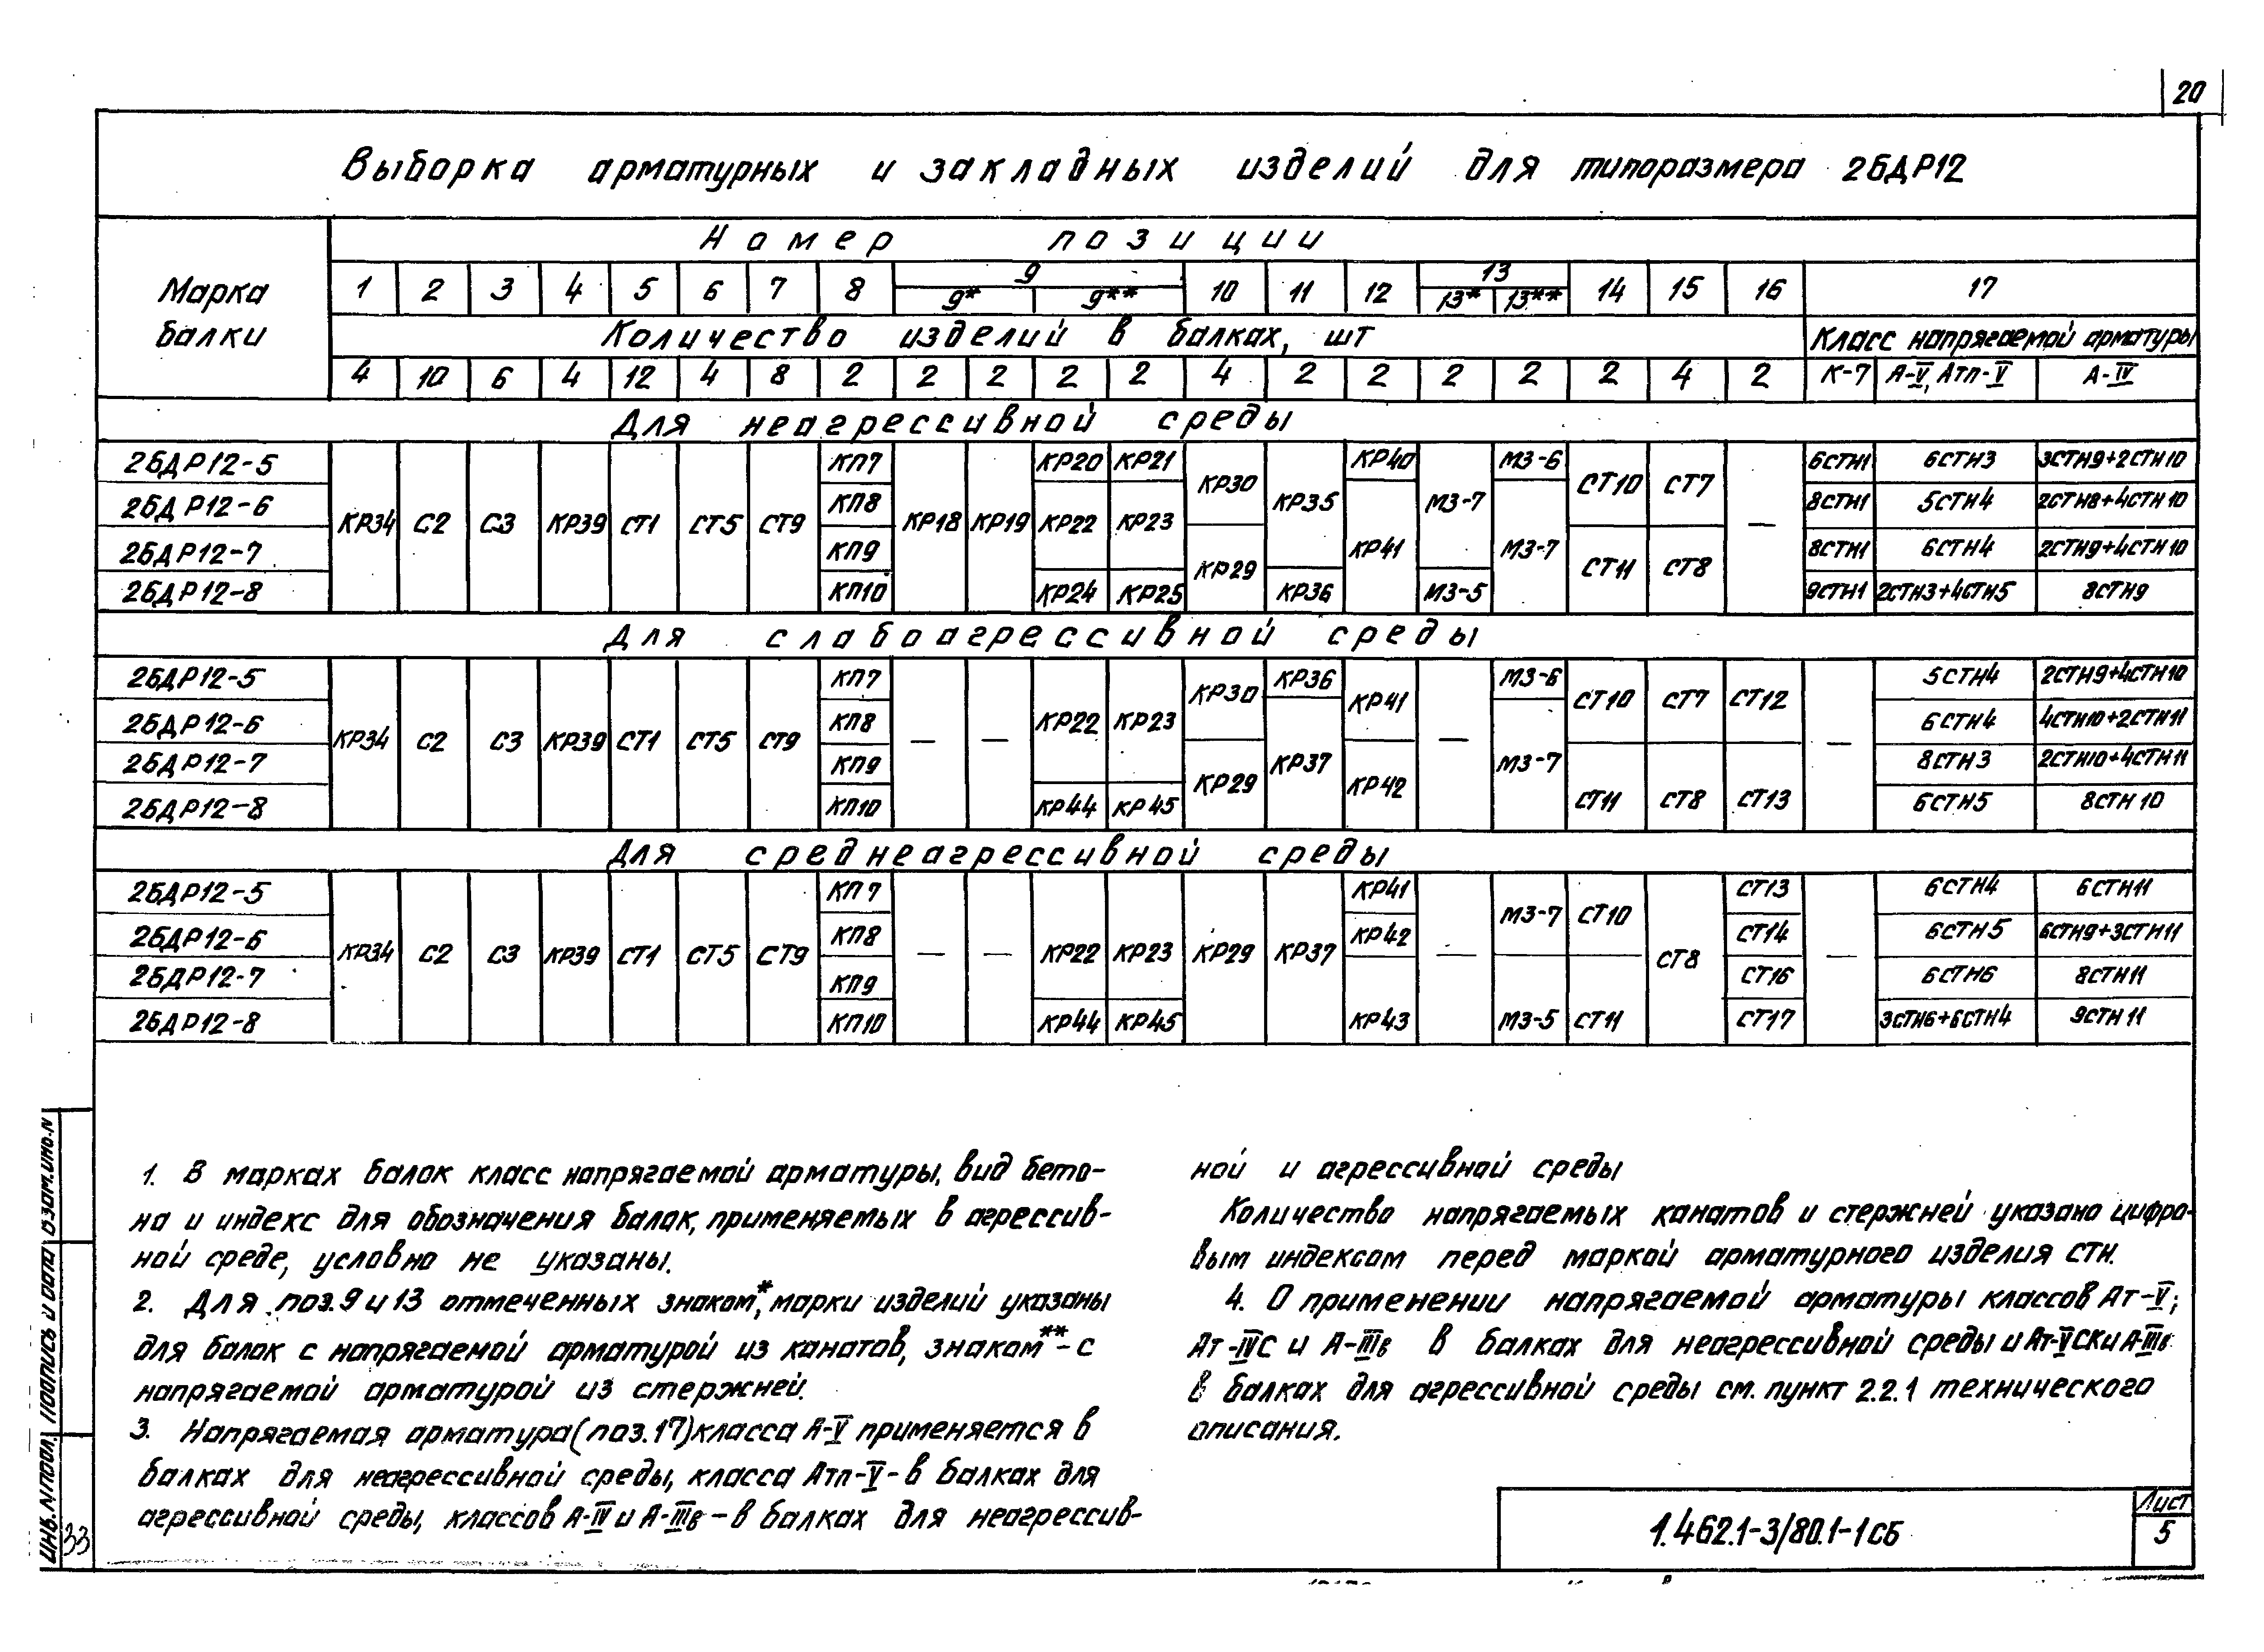 20
Выборка арматурных и закладных изделий для типоразмера 2БДР12
Марка балки
Номер позиции
1 2 3 4 5 6 7 8 9 10 11 12 13 14 15 16 17
9* 9** 13* 13**
Количество изделий в балках, шт
Класс напрягаемой арматуры
4 10 6 4 12 4 8 2 2 2 2 2 4 2 2 2 2 2 4 2 К-7 А-V, Атп-V А-IV
Для неагрессивной среды
2БДР12-5 КП7 КР20 КР21 КР40 МЗ-6 6СТН1 6СТН3 3СТН9+2СТН10
КР30 СТ10 СТ7
2БДР12-6 КП8 КР35 МЗ-7 8СТН1 5СТН4 2СТН8+4СТН10
КР34 С2 С3 КР39 СТ1 СТ5 СТ9 КР18 КР19 КР22 КР23 —
2БДР12-7 КП9 КР41 МЗ-7 8СТН1 6СТН4 2СТН9+4СТН10
КР29 СТ11 СТ8
2БДР12-8 КП10 КР24 КР25 КР36 МЗ-5 9СТН1 2СТН3+4СТН5 8СТН9
Для слабоагрессивной среды
2БДР12-5 КП7 КР36 МЗ-6 5СТН4 2СТН9+4СТН10
КР30 КР41 СТ10 СТ7 СТ12
2БДР12-6 КП8 КР22 КР23 6СТН4 4СТН10+2СТН11
КР34 С2 С3 КР39 СТ1 СТ5 СТ9 — — — —
2БДР12-7 КП9 КР37 МЗ-7 8СТН3 2СТН10+4СТН11
КР29 КР42
2БДР12-8 КП10 КР44 КР45 СТ11 СТ8 СТ13 6СТН5 8СТН10
Для среднеагрессивной среды
2БДР12-5 КП7 КР41 СТ13 6СТН4 6СТН11
МЗ-7 СТ10
2БДР12-6 КП8 КР42 СТ14 6СТН5 6СТН9+3СТН11
КР34 С2 С3 КР39 СТ1 СТ5 СТ9 — — КР22 КР23 КР29 КР37 — СТ8 —
2БДР12-7 КП9 СТ16 6СТН6 8СТН11
2БДР12-8 КП10 КР44 КР45 КР43 МЗ-5 СТ11 СТ17 3СТН6+6СТН4 9СТН11
1. В марках балок класс напрягаемой арматуры, вид бето-
на и индекс для обозначения балок, применяемых в агрессив-
ной среде, условно не указаны.
2. Для поз. 9 и 13 отмеченных знаком*, марки изделий указаны
для балок с напрягаемой арматурой из канатов, знаком** - с
напрягаемой арматурой из стержней.
3. Напрягаемая арматура (поз. 17) класса А-V применяется в
балках для неагрессивной среды, класса Атп-V - в балках для
агрессивной среды, классов А-IV и А-IIIв - в балках для неагрессив-
ной и агрессивной среды
Количество напрягаемых канатов и стержней указано цифро-
вым индексом перед маркой арматурного изделия СТН.
4. О применении напрягаемой арматуры классов Ат-V;
Ат-IVС и А-IIIв в балках для неагрессивной среды и Ат-VСК и А-IIIв
в балках для агрессивной среды см. пункт 2.2.1 технического
описания.
1.462.1-3/80.1-1СБ
Лист
5
Инв. N подл. Подпись и дата Взам. инв. N
33